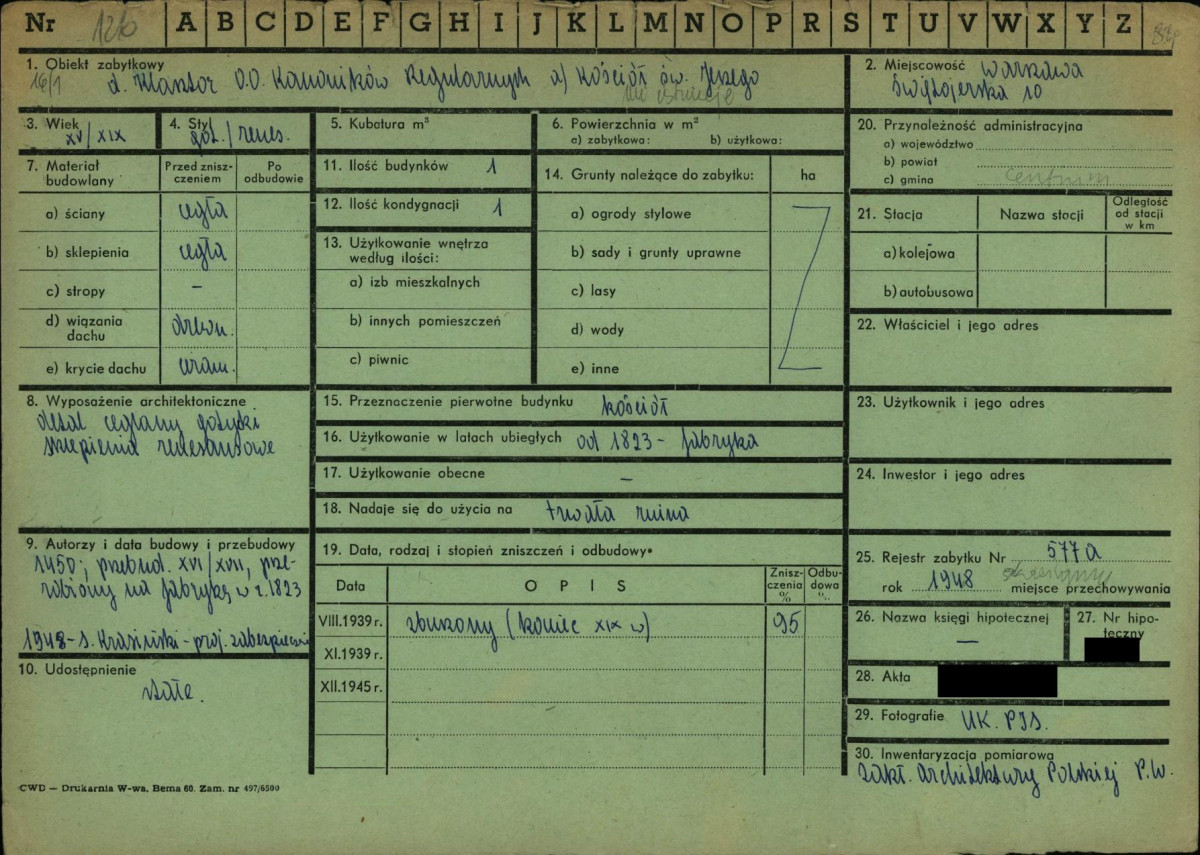 Nr 126 A B C D E F G H I J K L M N O P R S T U V W X Y Z
1. Obiekt zabytkowy
16/1 d. Klasztor O.O. Kanoników Regularnych a) Kościół św. Jerzego
nie istnieje
2. Miejscowość Warszawa
Świętojerska 10
3. Wiek
XV/XIX
4. Styl
got./renes.
5. Kubatura m³
6. Powierzchnia w m²
a) zabytkowa: b) użytkowa:
20. Przynależność administracyjna
a) województwo
b) powiat
c) gmina Centrum
7. Materiał budowlany
Przed znisz-
czeniem
Po
odbudowie
a) ściany cegła
b) sklepienia cegła
c) stropy –
d) wiązania
dachu drewn.
e) krycie dachu ceram.
11. Ilość budynków 1
12. Ilość kondygnacji 1
13. Użytkowanie wnętrza
według ilości:
a) izb mieszkalnych
b) innych pomieszczeń
c) piwnic
14. Grunty należące do zabytku: ha
a) ogrody stylowe
b) sady i grunty uprawne
c) lasy
d) wody
e) inne
21. Stacja Nazwa stacji
Odległość
od stacji
w km
a) kolejowa
b) autobusowa
22. Właściciel i jego adres
8. Wyposażenie architektoniczne
detal ceglany gotycki
sklepienia renesansowe
15. Przeznaczenie pierwotne budynku kościół
16. Użytkowanie w latach ubiegłych od 1823 – fabryka
17. Użytkowanie obecne –
18. Nadaje się do użycia na trwała ruina
23. Użytkownik i jego adres
24. Inwestor i jego adres
9. Autorzy i data budowy i przebudowy
1450; przebud. XVI/XVII, prze-
robiony na fabrykę w r. 1823
1948 – S. Krasiński – proj. zabezpieczenia
10. Udostępnienie
stałe.
19. Data, rodzaj i stopień zniszczeń i odbudowy*
Data OPIS
Znisz-
czenia
%
Odbu-
dowa
%
VIII.1939 r. zburzony (koniec XIX w) 95
XI.1939 r.
XII.1945 r.
25. Rejestr zabytku Nr 577 a
rok 1948 miejsce przechowywania
26. Nazwa księgi hipotecznej
–
27. Nr hipo-
teczny
28. Akta
29. Fotografie UK. PIS.
30. Inwentaryzacja pomiarowa
Zakł. Architektury Polskiej P.W.
CWD — Drukarnia W-wa, Bema 60. Zam. nr 497/6500